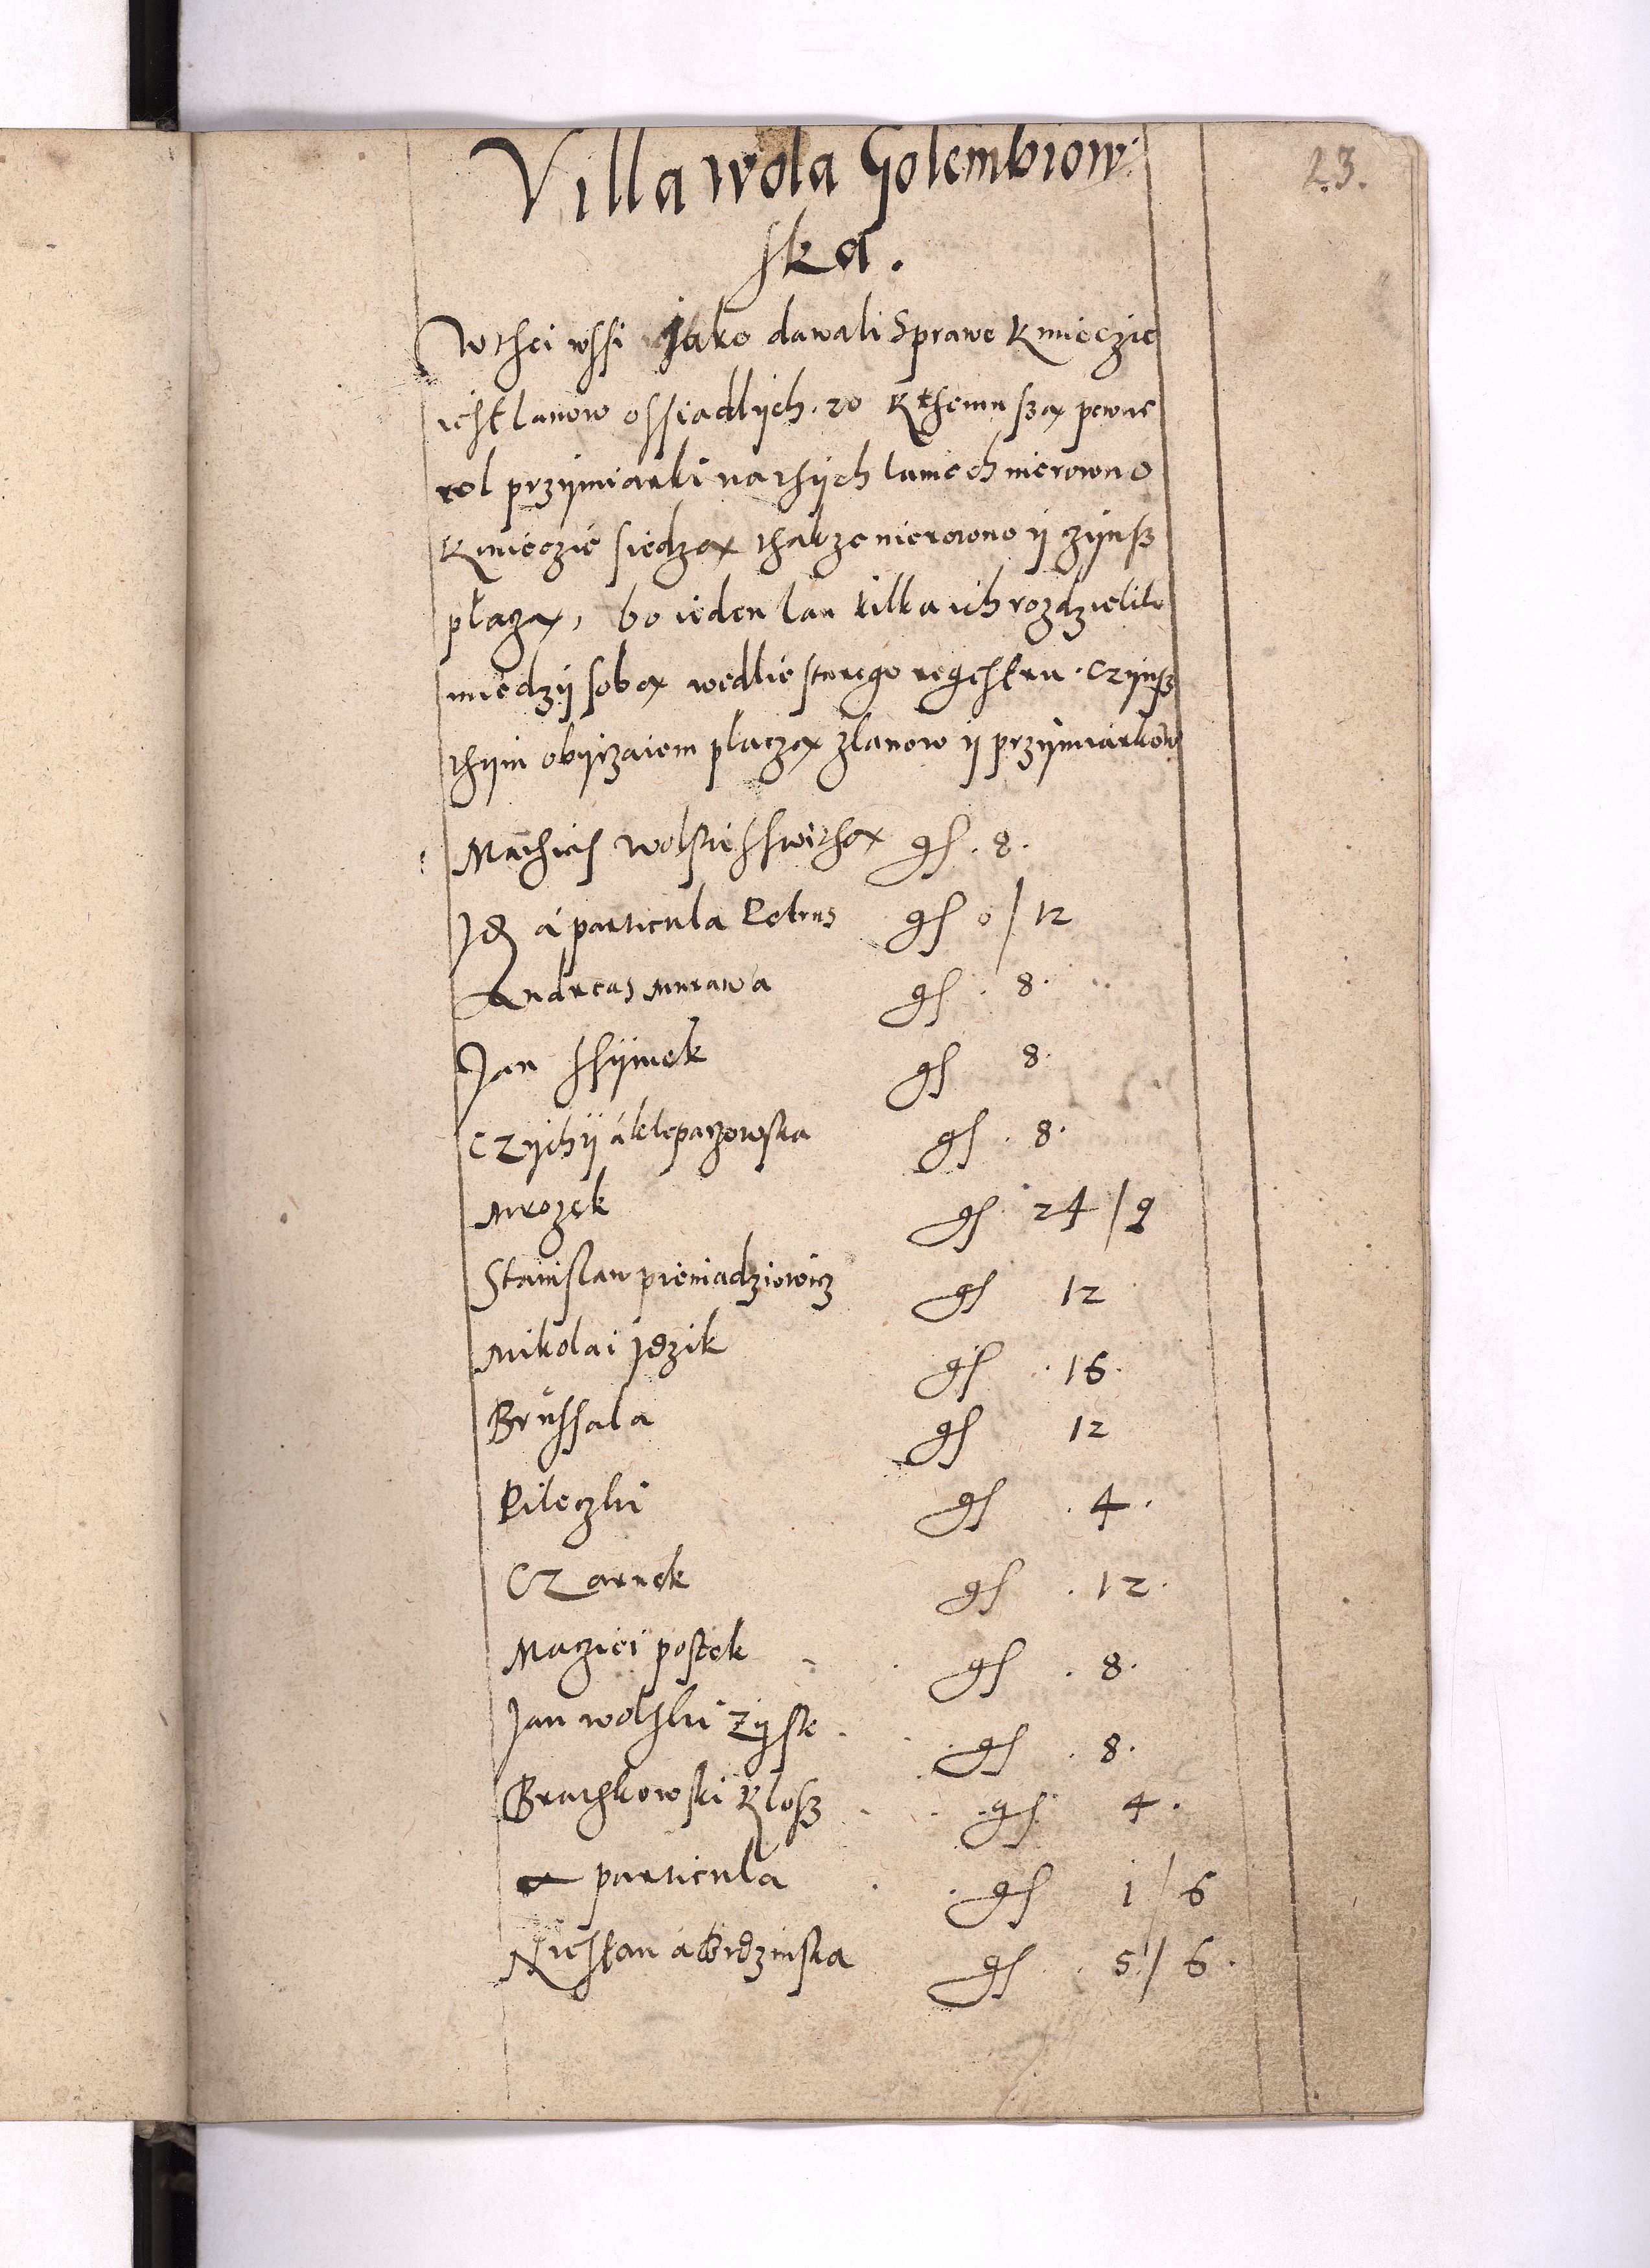 23.
Villa wola Golembiow
ska.
W thei wssi Jako dawali Sprawe Kmieczie
iest lanow ossiadlych. 20 K themu sza pewne
rol przymiarki na thych laniech nierowno
Kmieczie siedza thakze nierowno y zynsz
placza, bo ieden lan kilka ich rozdzielilo
miedzy soba wedlie starego regestru. Czynsz
thym obyczaiem placza zlanow y przymiarkow
Mathias wolski sswitha gs. 8.
Jd a particula Petrus gs 0 / 12
Andreas Murawa gs. 8.
Jan ssymek gs 8.
Czychy a kleparzowska gs. 8.
Mrozek gs. 24 / 9
Stanislaw pieniadziowicz gs 12
Mikolai Jdzik gs. 16.
Brussala gs 12
Pileczki gs. 4.
Czarnek gs. 12.
Maciei postek gs. 8.
Jan wolski Zyste gs. 8.
Brathkowski Klosz gs. 4.
a particula gs 1 / 6
Niestan gs. 5 / 6.